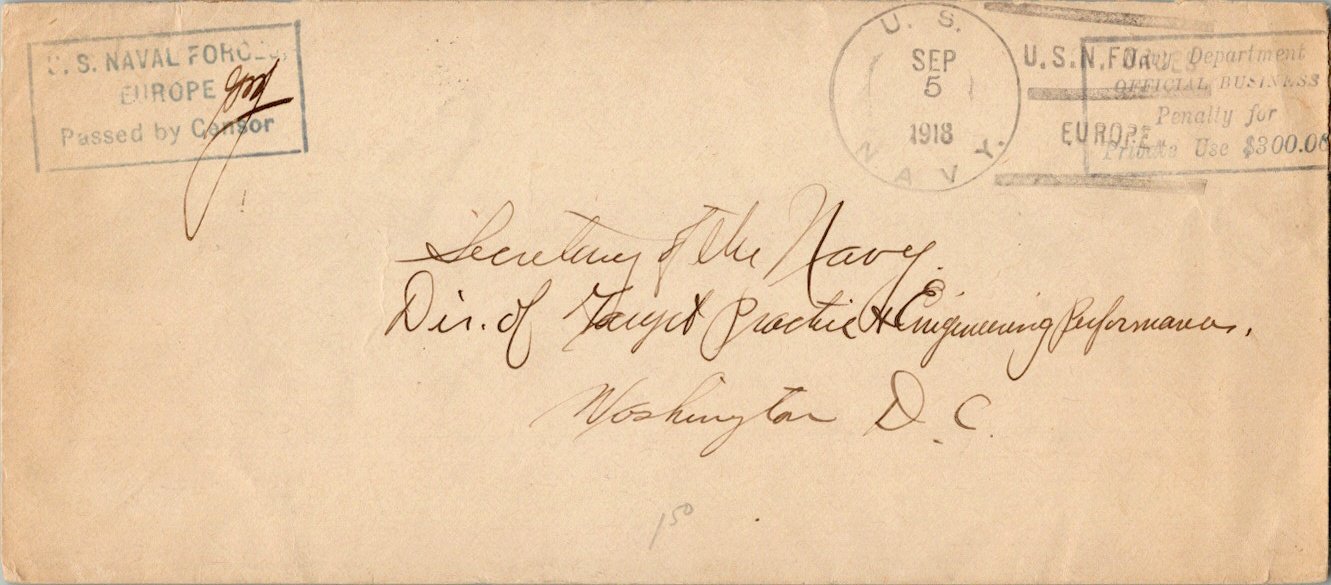 U. S. NAVAL FORCES,
EUROPE
Passed by Censor
U. S.
SEP
5
1918
NAVY.
U.S.N.FORCES
EUROPE
Navy Department
OFFICIAL BUSINESS
Penalty for
Private Use $300.00
Secretary of the Navy.
Dir. of Target Practice & Engineering Performances.
Washington D.C.
150